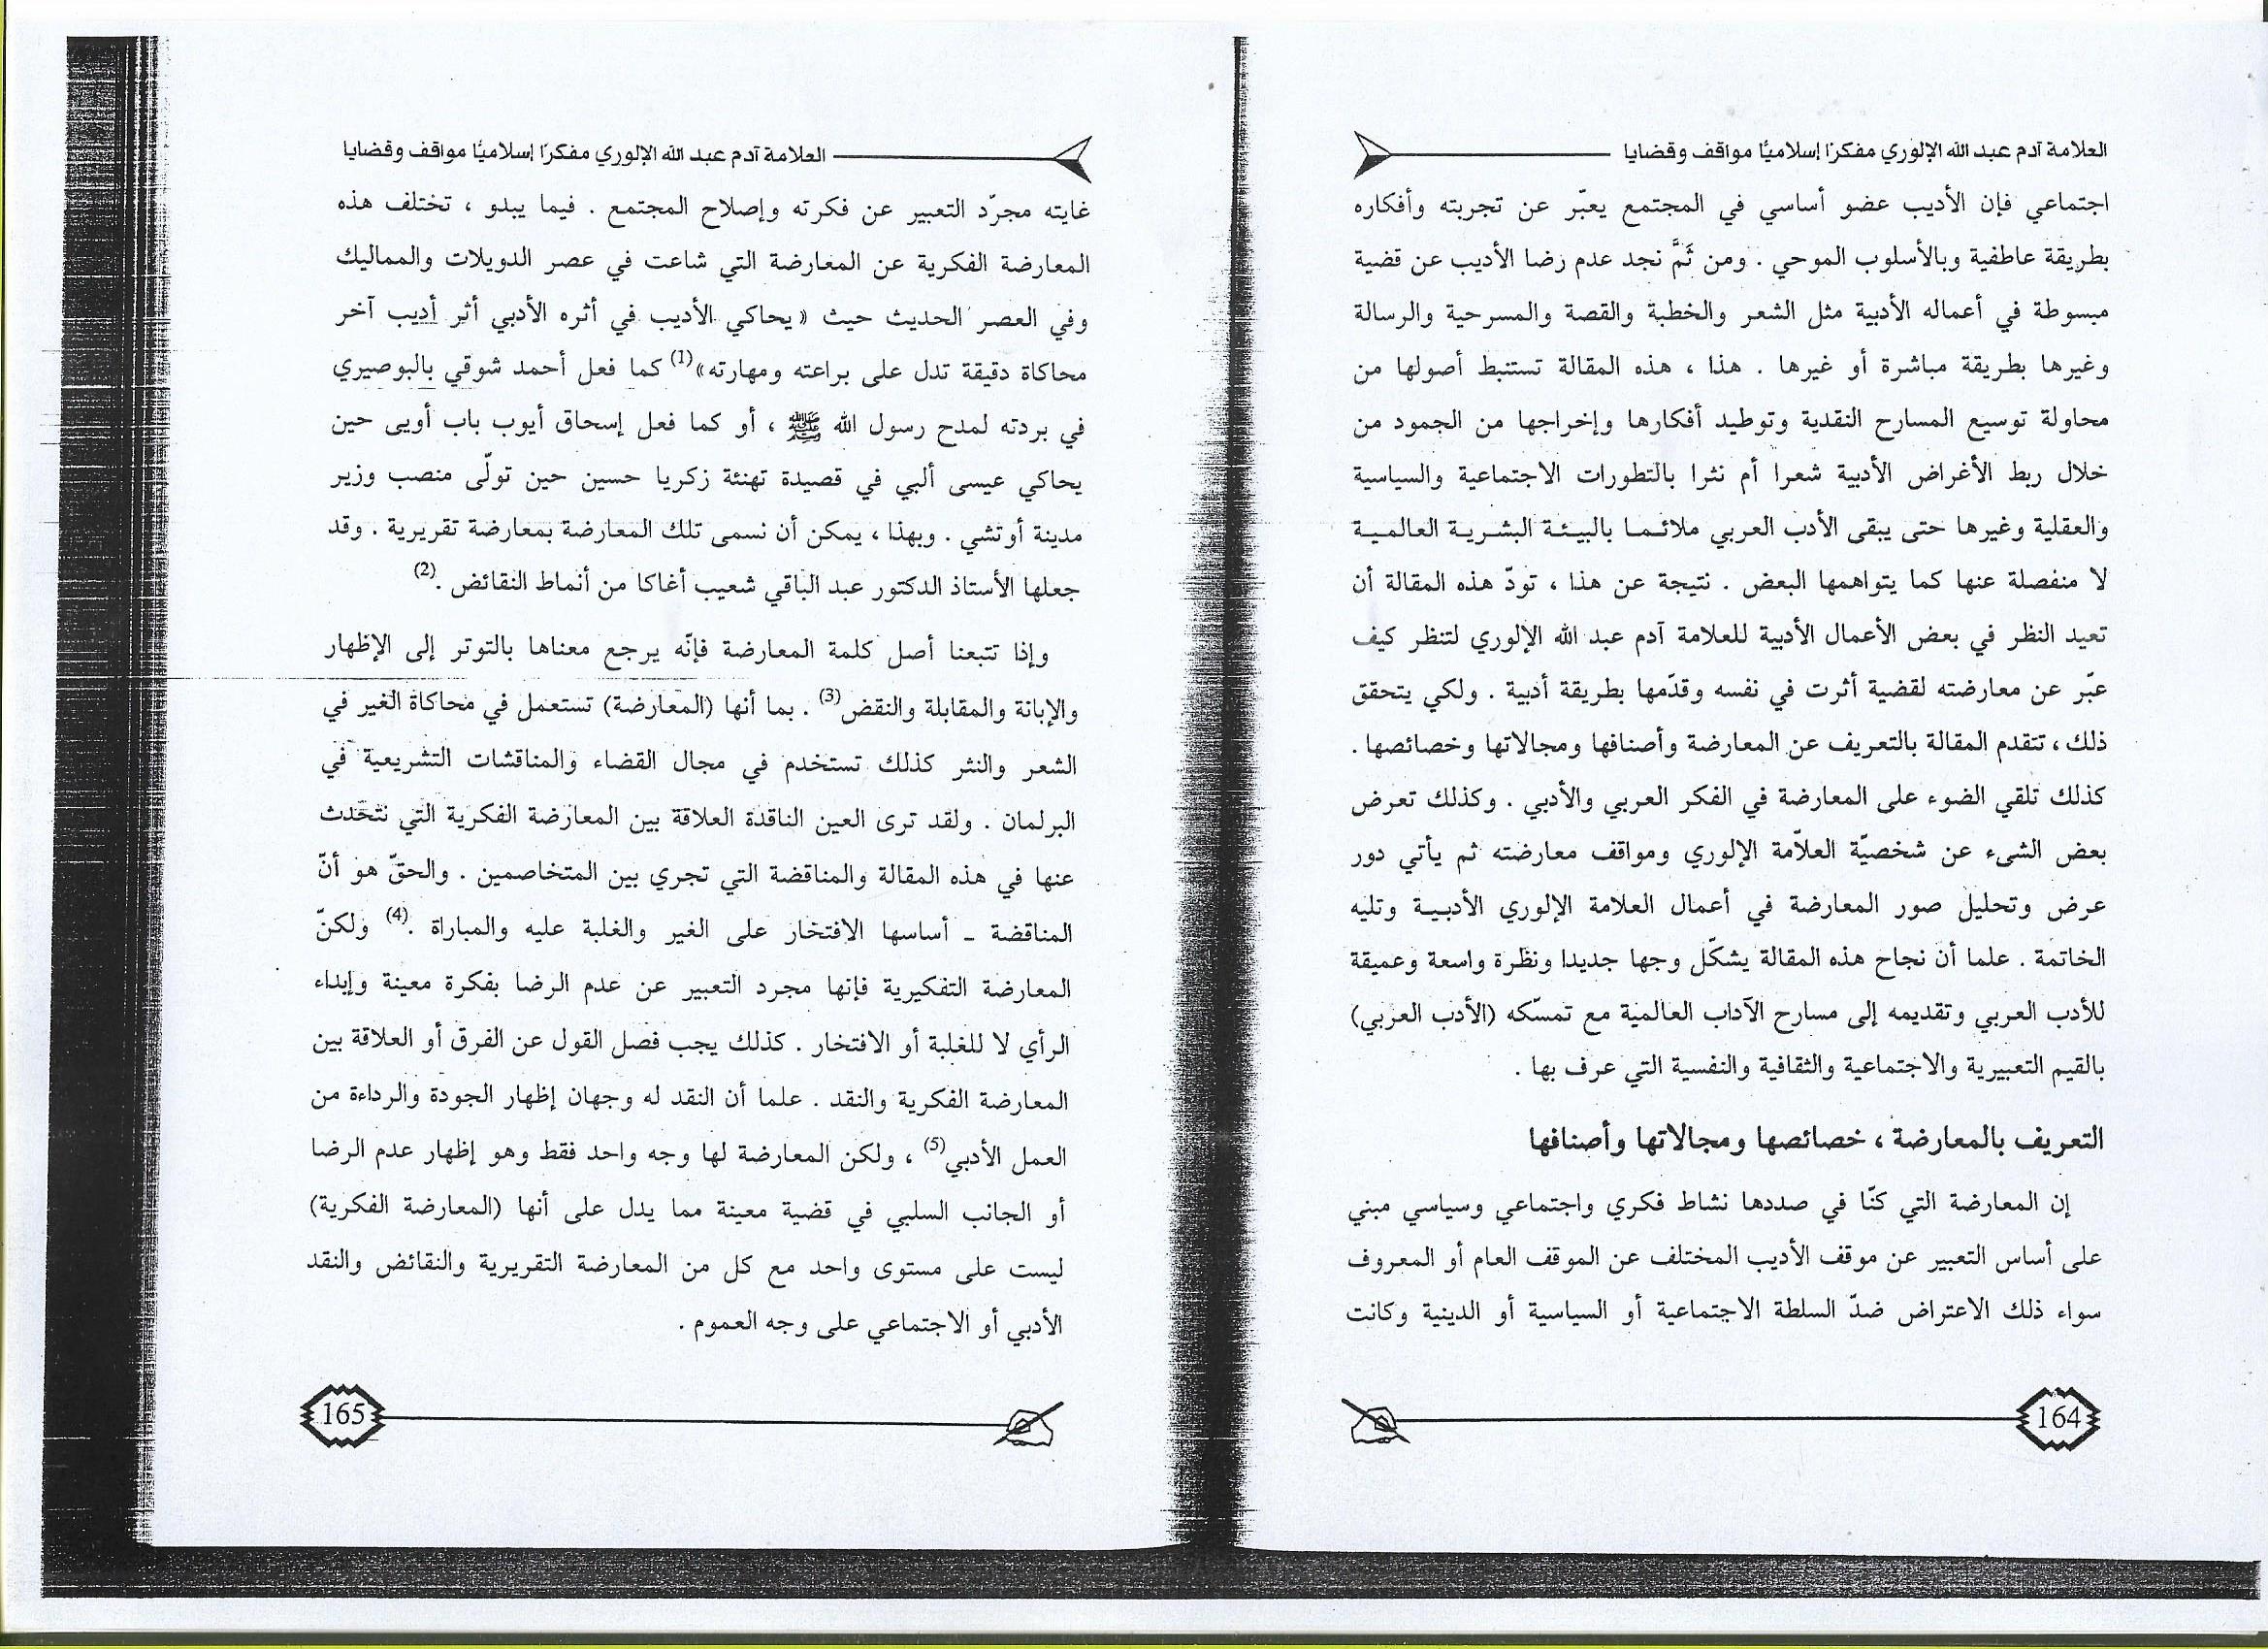 العلامة آدم عبد الله الإلوري مفكرًا إسلاميًا مواقف وقضايا
اجتماعي فإن الأديب عضو أساسي في المجتمع يعبّر عن تجربته وأفكاره
بطريقة عاطفية وبالأسلوب الموحي . ومن ثَمَّ نجد عدم رضا الأديب عن قضية
مبسوطة في أعماله الأدبية مثل الشعر والخطبة والقصة والمسرحية والرسالة
وغيرها بطريقة مباشرة أو غيرها . هذا ، هذه المقالة تستنبط أصولها من
محاولة توسيع المسارح النقدية وتوطيد أفكارها وإخراجها من الجمود من
خلال ربط الأغراض الأدبية شعرا أم نثرا بالتطورات الاجتماعية والسياسية
والعقلية وغيرها حتى يبقى الأدب العربي ملائما بالبيئة البشرية العالمية
لا منفصلة عنها كما يتواهمها البعض . نتيجة عن هذا ، تودّ هذه المقالة أن
تعيد النظر في بعض الأعمال الأدبية للعلامة آدم عبد الله الإلوري لتنظر كيف
عبّر عن معارضته لقضية أثرت في نفسه وقدّمها بطريقة أدبية . ولكي يتحقق
ذلك ، تتقدم المقالة بالتعريف عن المعارضة وأصنافها ومجالاتها وخصائصها .
كذلك تلقي الضوء على المعارضة في الفكر العربي والأدبي . وكذلك تعرض
بعض الشىء عن شخصيّة العلاّمة الإلوري ومواقف معارضته ثم يأتي دور
عرض وتحليل صور المعارضة في أعمال العلامة الإلوري الأدبية وتليه
الخاتمة . علما أن نجاح هذه المقالة يشكّل وجها جديدا ونظرة واسعة وعميقة
للأدب العربي وتقديمه إلى مسارح الآداب العالمية مع تمسّكه (الأدب العربي)
بالقيم التعبيرية والاجتماعية والثقافية والنفسية التي عرف بها .
التعريف بالمعارضة ، خصائصها ومجالاتها وأصنافها
إن المعارضة التي كنّا في صددها نشاط فكري واجتماعي وسياسي مبني
على أساس التعبير عن موقف الأديب المختلف عن الموقف العام أو المعروف
سواء ذلك الاعتراض ضدّ السلطة الاجتماعية أو السياسية أو الدينية وكانت
164
العلامة آدم عبد الله الإلوري مفكرًا إسلاميًا مواقف وقضايا
غايته مجرّد التعبير عن فكرته وإصلاح المجتمع . فيما يبدو ، تختلف هذه
المعارضة الفكرية عن المعارضة التي شاعت في عصر الدويلات والمماليك
وفي العصر الحديث حيث « يحاكي الأديب في أثره الأدبي أثر أديب آخر
محاكاة دقيقة تدل على براعته ومهارته»(1) كما فعل أحمد شوقي بالبوصيري
في بردته لمدح رسول الله ﷺ ، أو كما فعل إسحاق أيوب باب أويى حين
يحاكي عيسى ألبي في قصيدة تهنئة زكريا حسين حين تولّى منصب وزير
مدينة أوتشي . وبهذا ، يمكن أن نسمى تلك المعارضة بمعارضة تقريرية . وقد
جعلها الأستاذ الدكتور عبد الباقي شعيب أغاكا من أنماط النقائض .(2)
وإذا تتبعنا أصل كلمة المعارضة فإنّه يرجع معناها بالتوتر إلى الإظهار
والإبانة والمقابلة والنقض(3) . بما أنها (المعارضة) تستعمل في محاكاة الغير في
الشعر والنثر كذلك تستخدم في مجال القضاء والمناقشات التشريعية في
البرلمان . ولقد ترى العين الناقدة العلاقة بين المعارضة الفكرية التي نتحدث
عنها في هذه المقالة والمناقضة التي تجري بين المتخاصمين . والحقّ هو أنّ
المناقضة ـ أساسها الافتخار على الغير والغلبة عليه والمباراة .(4) ولكنّ
المعارضة التفكيرية فإنها مجرد التعبير عن عدم الرضا بفكرة معينة وإبداء
الرأي لا للغلبة أو الافتخار . كذلك يجب فصل القول عن الفرق أو العلاقة بين
المعارضة الفكرية والنقد . علما أن النقد له وجهان إظهار الجودة والرداءة من
العمل الأدبي(5) ، ولكن المعارضة لها وجه واحد فقط وهو إظهار عدم الرضا
أو الجانب السلبي في قضية معينة مما يدل على أنها (المعارضة الفكرية)
ليست على مستوى واحد مع كل من المعارضة التقريرية والنقائض والنقد
الأدبي أو الاجتماعي على وجه العموم .
165